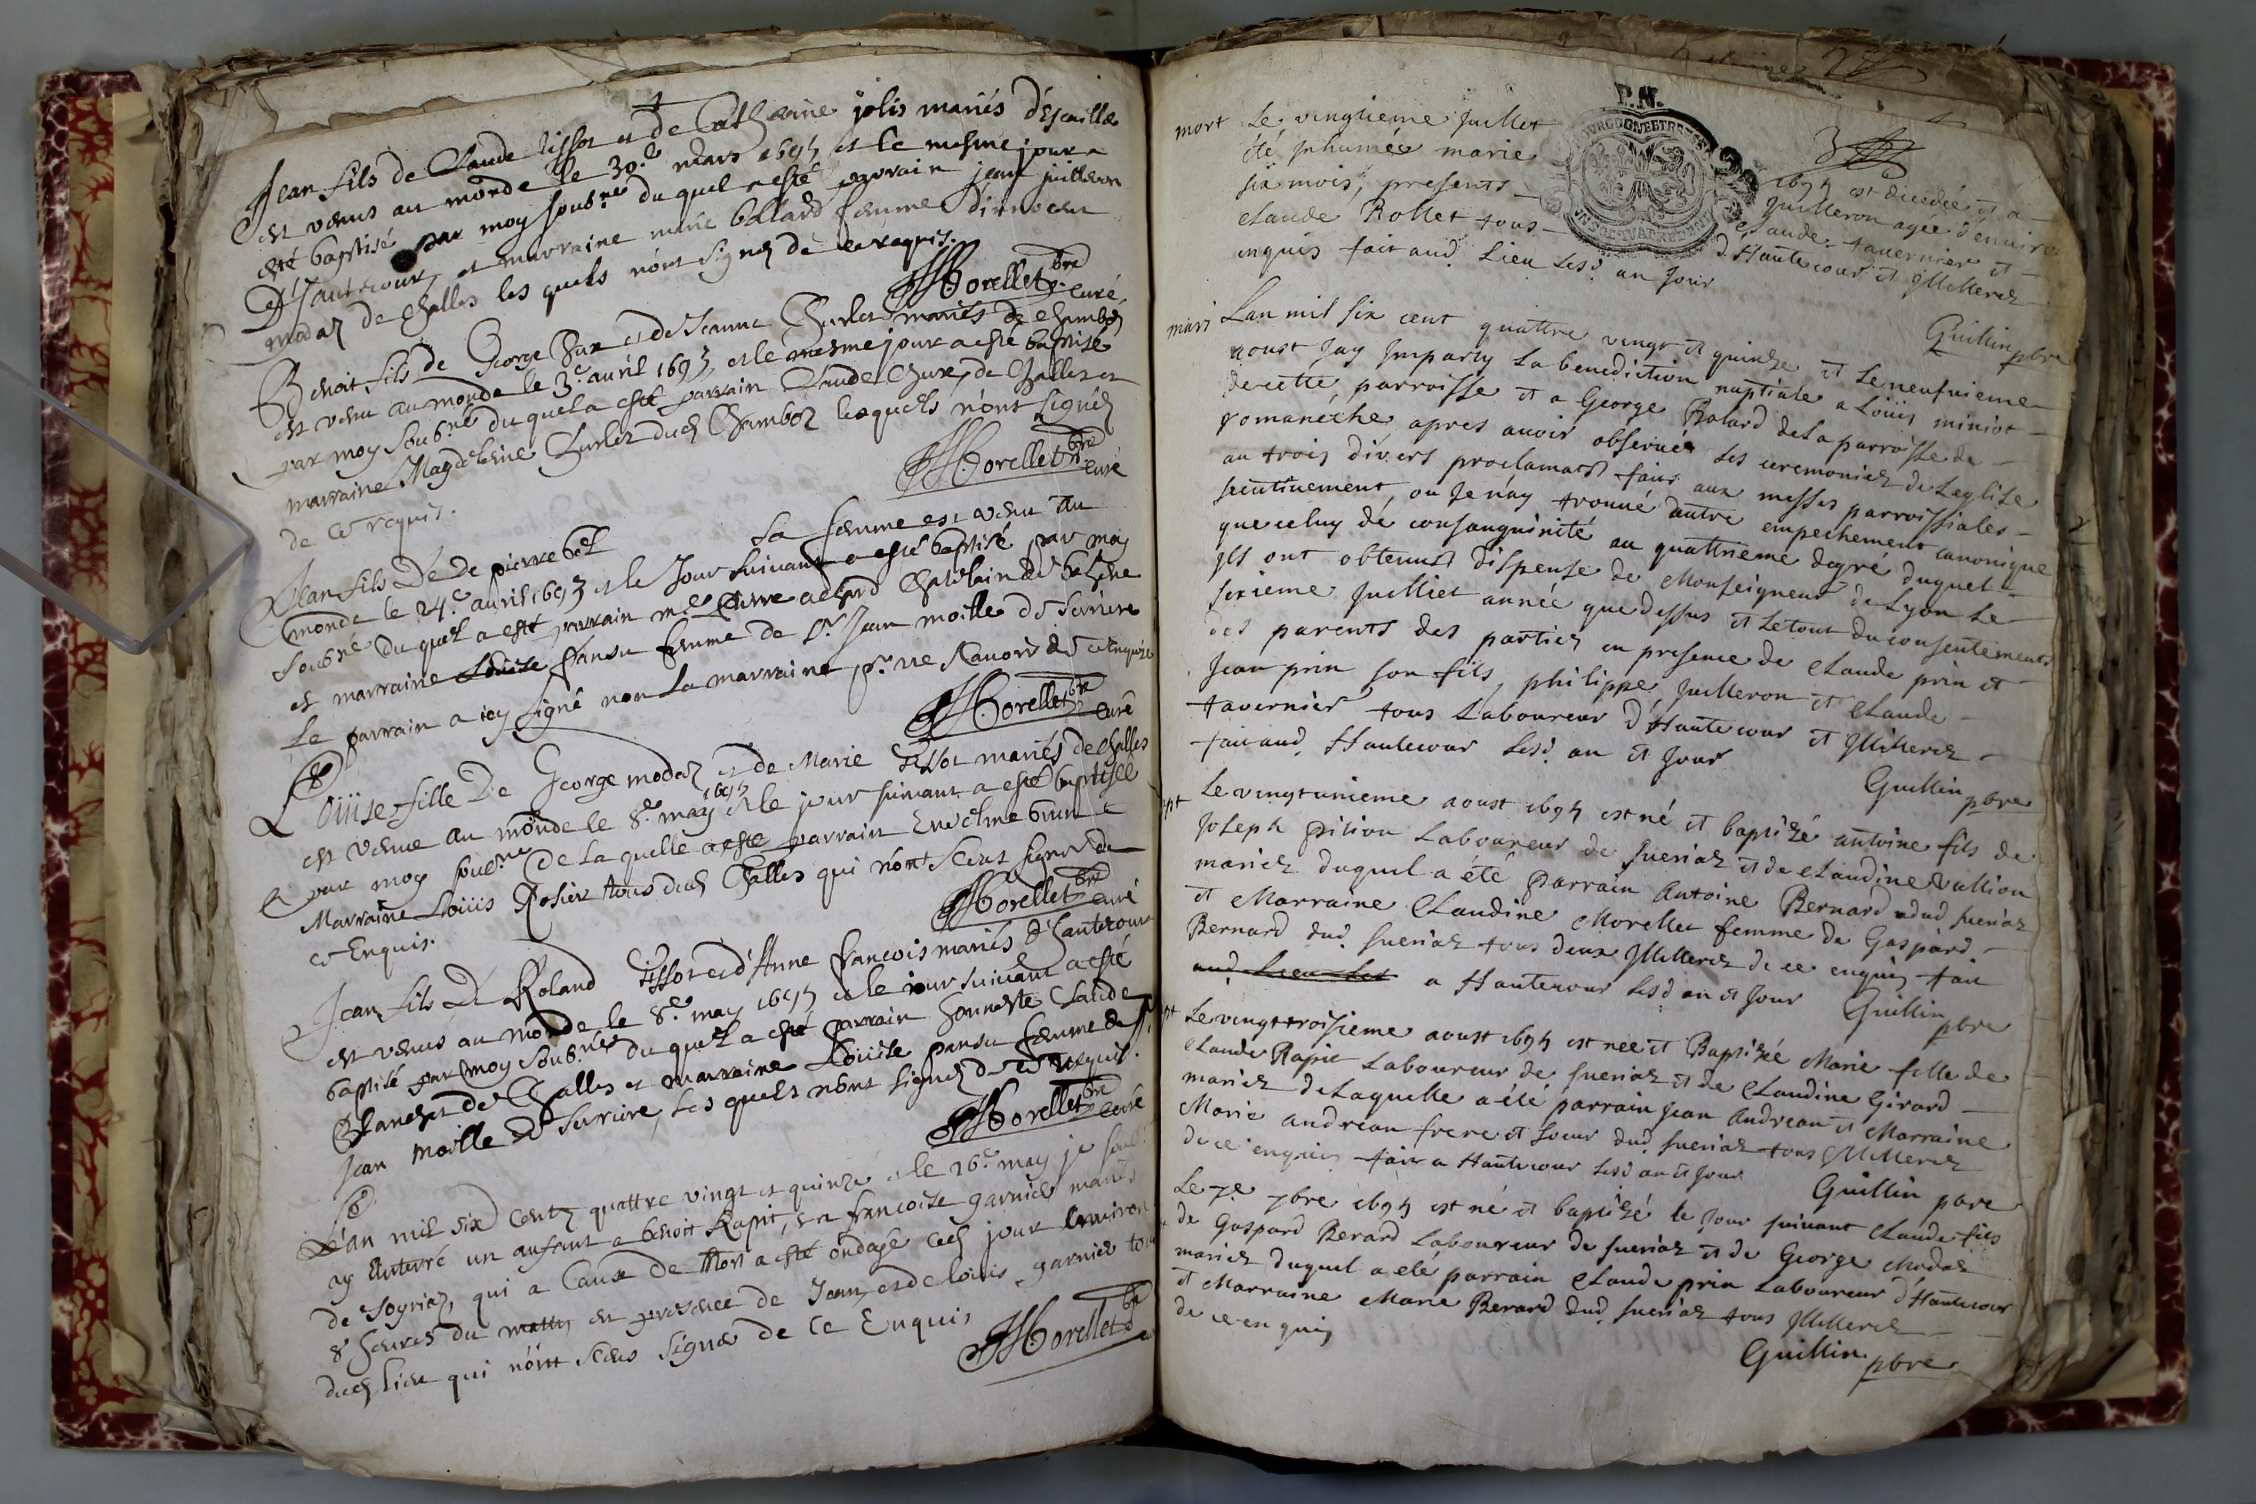 Jean fils de Claude tissot et de Catherine jolis mariés d'Escuilla
est venus au monde le 30.e mars 1695 et le mesme jour a
esté baptisé par moy soubne du quel a esté parrain jean juilleron
d'hautecour, et marraine marie ballard femme d'innocent
modaz de Challes les quels n'ont signez de ce requis.
JMorellet pbre curé
Benoit fils de George Sux et de Jeanne Churlet mariés de Chamboz
est venu au monde le 3.e avril 1695, et le mesme jour a esté baptisé
par moy soubne du quel a esté parrain Claude Chure, de Challes et
marraine Magdelaine Lurlet dud Chamboz lesquels n'ont signéz
de ce requis.
JMorellet pbre curé
Jean fils De De pierre bet sa femme est venu au
monde le 24.e avril 1695 et le Jour suivant a esté baptisé par moy
soubne du quel a esté parrain me Pierre achard Chatelain de
et marraine Louise pansu femme de Sr Jean moille de Serriere
Le parrain a icy signé non La marraine pr ne scavoir de ce enquise
JMorellet pbre curé
Loüise fille De George modaz et de Marie tissot mariés de Challes
est venue au monde le 8.e may 1695 et le jour suivant a esté baptisée
par moy soubne De la quelle a esté parrain brun et
Marraine Loüis Rosier tous dud Challes qui n'ont sceus signer de
ce Enquis.
JMorellet pbre curé
Jean fils De Roland tissot et d'Anne francois mariés d'hautecour
est venus au monde le 8.e may 1695 et le jour suivant a esté
baptisé par moy soubne du quel a esté parrain honneste Claude
Blanchet de Challes et marraine Loüise pansu femme de Sr
Jean moille de Serriere, les quels n'ont signez de ce requis.
JMorellet pbre curé
L'an mil six Centz quattre vingt et quinze et le 26.e may je soub
ay Enterré un anfant a benoit Rapit, et a francoise garnier mariés
de Sogriaz, qui a Cause de Mort a esté ondoyé led jour Environ
8 heures du mattin en presence de Jean, et de loüis garnier tous
dud lieu qui n'ont sceus signer de ce Enquis
JMorellet pbre
P.N.
mort Le vingtiéme Juillet 1695 est decedée et a
été Jnhumée marie Juilleron agée d'enuiron
six mois, presents Claude tavernier et
claude Rollet tous d'Hautecour et Jlliterez
enquis fait aud. Lieu Lesd an Jour
Guillin pbre
mari Lan mil six cent quattre vingt et quinze et Le neufuieme
aoust Jay Jmparty La benediction nuptiale a Loüis miniot
de cette parroisse et a George Bolard de La parroisse de
romanéche apres auoir obserueé Les ceremoniez de Leglise
au trois divers proclamats fait aux messes parroissiales
secutiuement, ou Je n'ay trouué autre empechement canonique
que celuy de consanguinité au quattrieme degré duquel
Jls ont obtenus dispense de Monseigneur de Lyon Le
sixieme Juilliet année que dessus et Le tout du consentements
des parents des partiez en presence de claude prin et
Jean prin son fils, philippe Juilleron et claude
tavernier tous Laboureur d'Hautecour et Jlliterez
fait aud Hautecour Lesd an et Jour
Guillin pbre
pt Le vingtunieme aoust 1695 est né et baptizé antoine fils de
Joseph pition Laboureur de sueriaz et de claudine Vallion
mariez duquel a été parrain Antoine Bernard dud sueriaz
et Marraine Claudine Morellet femme de Gaspard
Bernard dud. sueriaz tous deux Jlliterez de ce enquis fait
aud. Lieu Les a Hautecour Lesd an et Jour
Guillin pbre
pt Le vingt troisieme aoust 1695 est née et Baptizée Marie fille de
claude Rapit Laboureur de sueriaz et de claudine Girard
mariez de Laquelle a été parrain Jean Andrean et Marraine
Marie andrean frere et soeur dud sueriaz tous Jlliterez
de ce enquis fait a Hautecour Lesd an et Jour
Guillin pbre
Le 7e 7bre 1695 est né et baptizé le Jour suiuant claude fils
de Gaspard Berard Laboureur de sueriaz et de George Modaz
mariez duquel a ete parrain claude prin Laboureur d'Hautecour
et Marraine Marie Berard dud sueriaz tous Jlliterez
de ce enquis
Guillin pbre